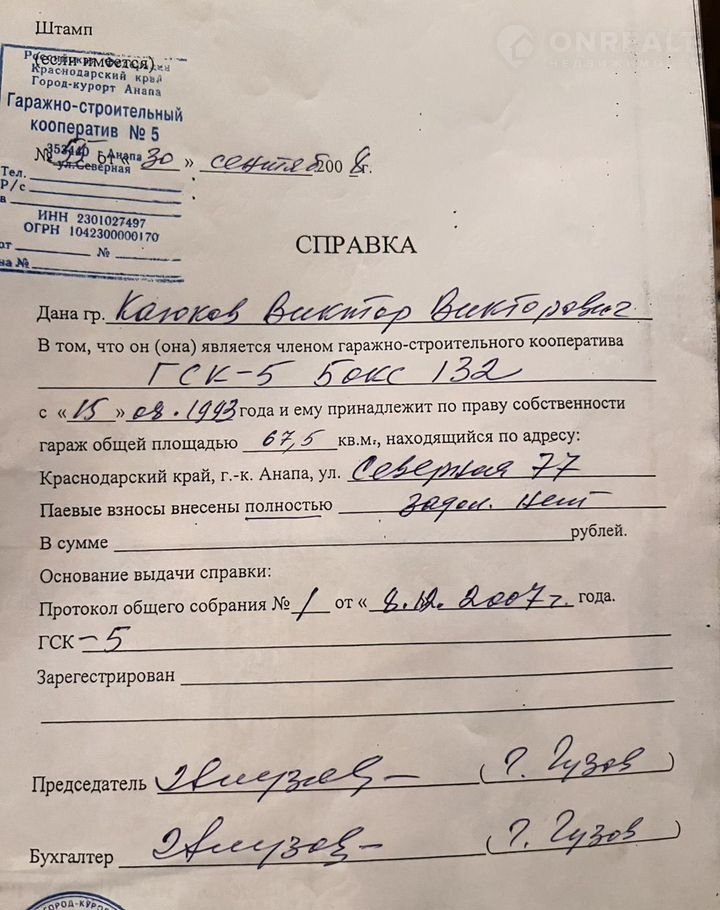 Штамп
(если имеется)
Российская Федерация
Краснодарский край
Город-курорт Анапа
Гаражно-строительный
кооператив № 5
353440 г. Анапа
ул. Северная
№ 55 от « 30 » сентяб 2008 г.
Тел.
Р/с
в
ИНН 2301027497
ОГРН 1042300000170
от № 
на №
ONREALT
НЕДВИЖИМОСТЬ
СПРАВКА
Дана гр. Каюков Виктор Викторович
В том, что он (она) является членом гаражно-строительного кооператива
ГСК-5 Бокс 132
с « 15 » 08.1993 года и ему принадлежит по праву собственности
гараж общей площадью 67,5 кв.м., находящийся по адресу:
Краснодарский край, г.-к. Анапа, ул. Северная 77
Паевые взносы внесены полностью задол. нет
В сумме рублей.
Основание выдачи справки:
Протокол общего собрания № 1 от « 8.12.2007 г. года.
ГСК -5
Зарегестрирован
Председатель ( Г. Гузов )
Бухгалтер ( Г. Гузов )
ГОРОД-КУРОР